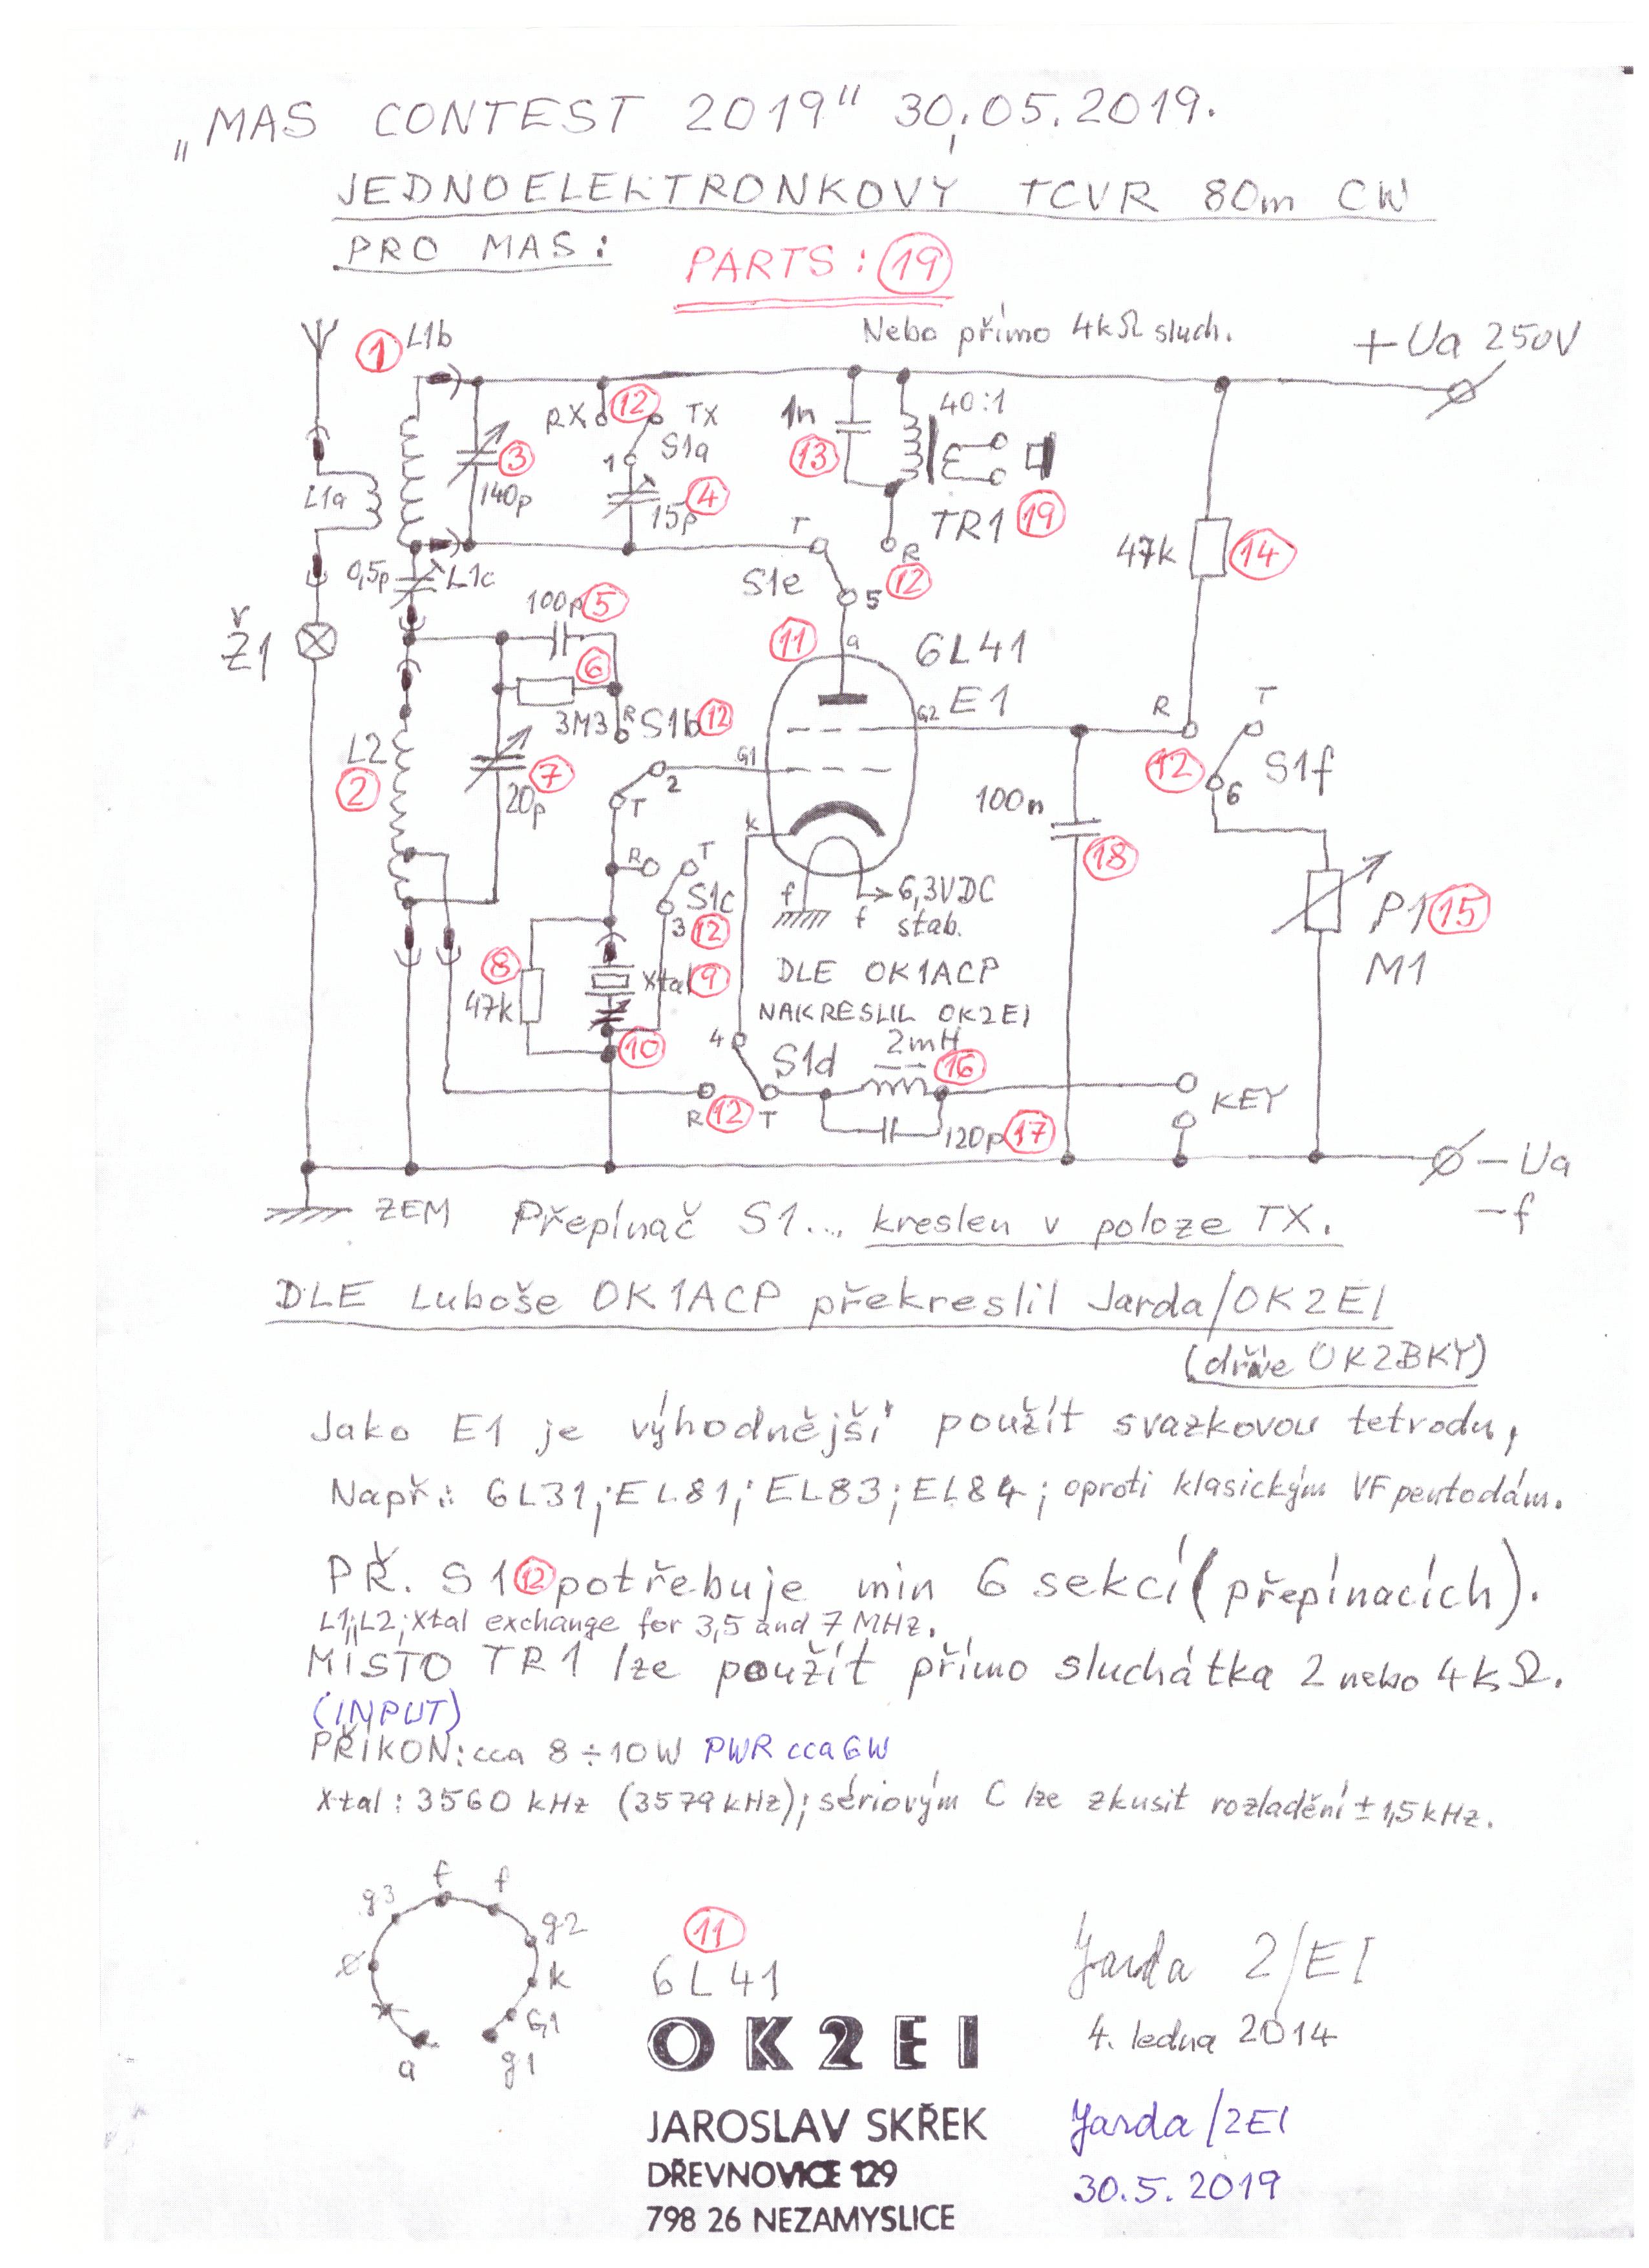 „MAS CONTEST 2019" 30.05.2019.
JEDNOELEKTRONKOVÝ TCVR 80m CW
PRO MAS:
PARTS: 19
Nebo přímo 4kΩ sluch.
+Ua 250V
1 L1b
RX 12 TX
S1a
1
1n
13
40:1
3
140p
4
15p
TR1 19
L1a
T
R
12
S1e
5
47k 14
0,5p L1c
100p 5
Ž1
6
3M3
R S1b 12
11
a
6L41
E1
G2
R
T
12
S1f
6
L2
2
7
20p
G1
2
T
100n
18
k
R
T
S1c
3 12
f
6,3VDC
f stab.
P1 15
M1
8
47k
Xtal 9
DLE OK1ACP
NAKRESLIL OK2EI
10
4
S1d
2mH
16
R 12 T
120p 17
KEY
-Ua
-f
ZEM Přepínač S1... kreslen v poloze TX.
DLE Luboše OK1ACP překreslil Jarda/OK2EI
(dříve OK2BKY)
Jako E1 je výhodnější použít svazkovou tetrodu,
Např.: 6L31; EL81; EL83; EL84; oproti klasickým VF pentodám.
PŘ. S1 12 potřebuje min 6 sekcí (přepínacích).
L1; L2; Xtal exchange for 3,5 and 7 MHz.
MÍSTO TR1 lze použít přímo sluchátka 2 nebo 4kΩ.
(INPUT)
PŘÍKON: cca 8÷10W PWR cca 6W
Xtal: 3560 kHz (3579 kHz); sériovým C lze zkusit rozladění ±1,5 kHz.
f f
g3
g2
k
G1
g1
a
11
6L41
OK2EI
JAROSLAV SKŘEK
DŘEVNOVICE 129
798 26 NEZAMYSLICE
Jarda 2/EI
4. ledna 2014
Jarda/2EI
30.5.2019